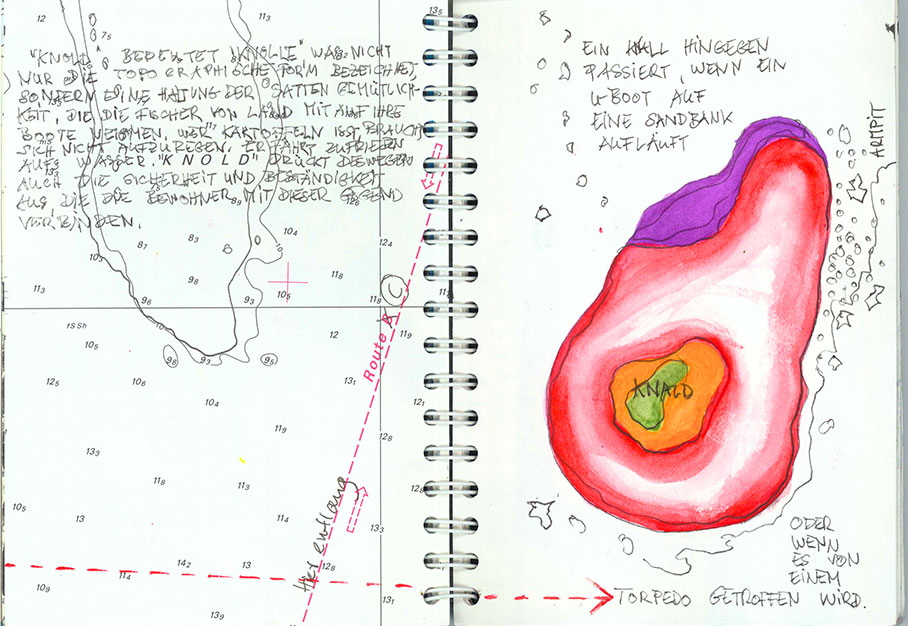 "KNOLD" BEDEUTET "KNOLLE", WAS NICHT
NUR DIE TOPOGRAPHISCHE FORM BEZEICHNET,
SONDERN EINE HALTUNG DER SATTEN GEMÜTLICH-
KEIT, DIE DIE FISCHER VON LAND MIT AUF IHRE
BOOTE NEHMEN. WER KARTOFFELN ISST, BRAUCHT
SICH NICHT AUFZUREGEN. ER FÄHRT ZUFRIEDEN
AUFS WASSER. "KNOLD" DRÜCKT DESWEGEN
AUCH DIE SICHERHEIT UND BESTÄNDIGKEIT
AUS, DIE DIE BEWOHNER MIT DIESER GEGEND
VERBINDEN.
12
11₃
13₅
7₅
8₇
8₃
10₄
12₄
10₃
9₈
11₈
11₃
9₆
9₃
10₅
11₈
C
fSSh
10₅
9₈
9₃
9₅
12
11₉
Route A
12₅
10₆
13₁
10₄
12₁
11₉
12₈
13₃
11₈
11₃
12₈
10₅
13
11₄
13₃
Hier entlang
14₂
13
12₈
10₉
11₄
13₁
13₉
EIN KNALL HINGEGEN
PASSIERT, WENN EIN
U-BOOT AUF
EINE SANDBANK
AUFLÄUFT
ARTIPIT
KNALD
ODER
WENN
ES VON
EINEM
TORPEDO GETROFFEN WIRD.